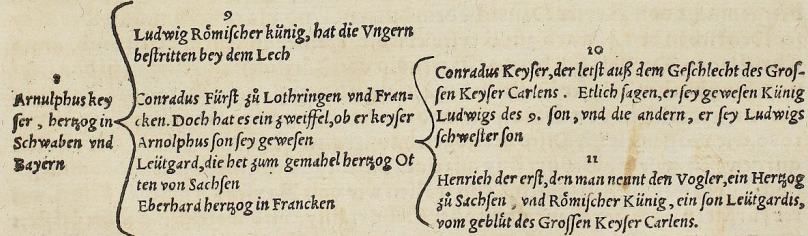 8
Arnulphus key
ser, hertzog in
Schwaben vnd
Bayern
9
Ludwig Roͤmischer kuͤnig, hat die Vngern
bestritten bey dem Lech
Conradus Fuͤrst zuͦ Lothringen vnd Fran=
cken. Doch hat es ein zweiffel, ob er keyser
Arnolphus son sey gewesen
Leuͤtgard, die het zum gemahel hertzog Ot
ten von Sachsen
Eberhard hertzog in Francken
10
Conradus Keyser, der letst auß dem Geschlecht des Gros-
sen Keyser Carlens. Etlich sagen, er sey gewesen Kuͤnig
Ludwigs des 9. son, vnd die andern, er sey Ludwigs
schwester son
11
Henrich der erst, den man nennt den Vogler, ein Hertzog
zuͦ Sachsen, vnd Roͤmischer Kuͤnig, ein son Leuͤtgardis,
vom gebluͤt des Grossen Keyser Carlens.